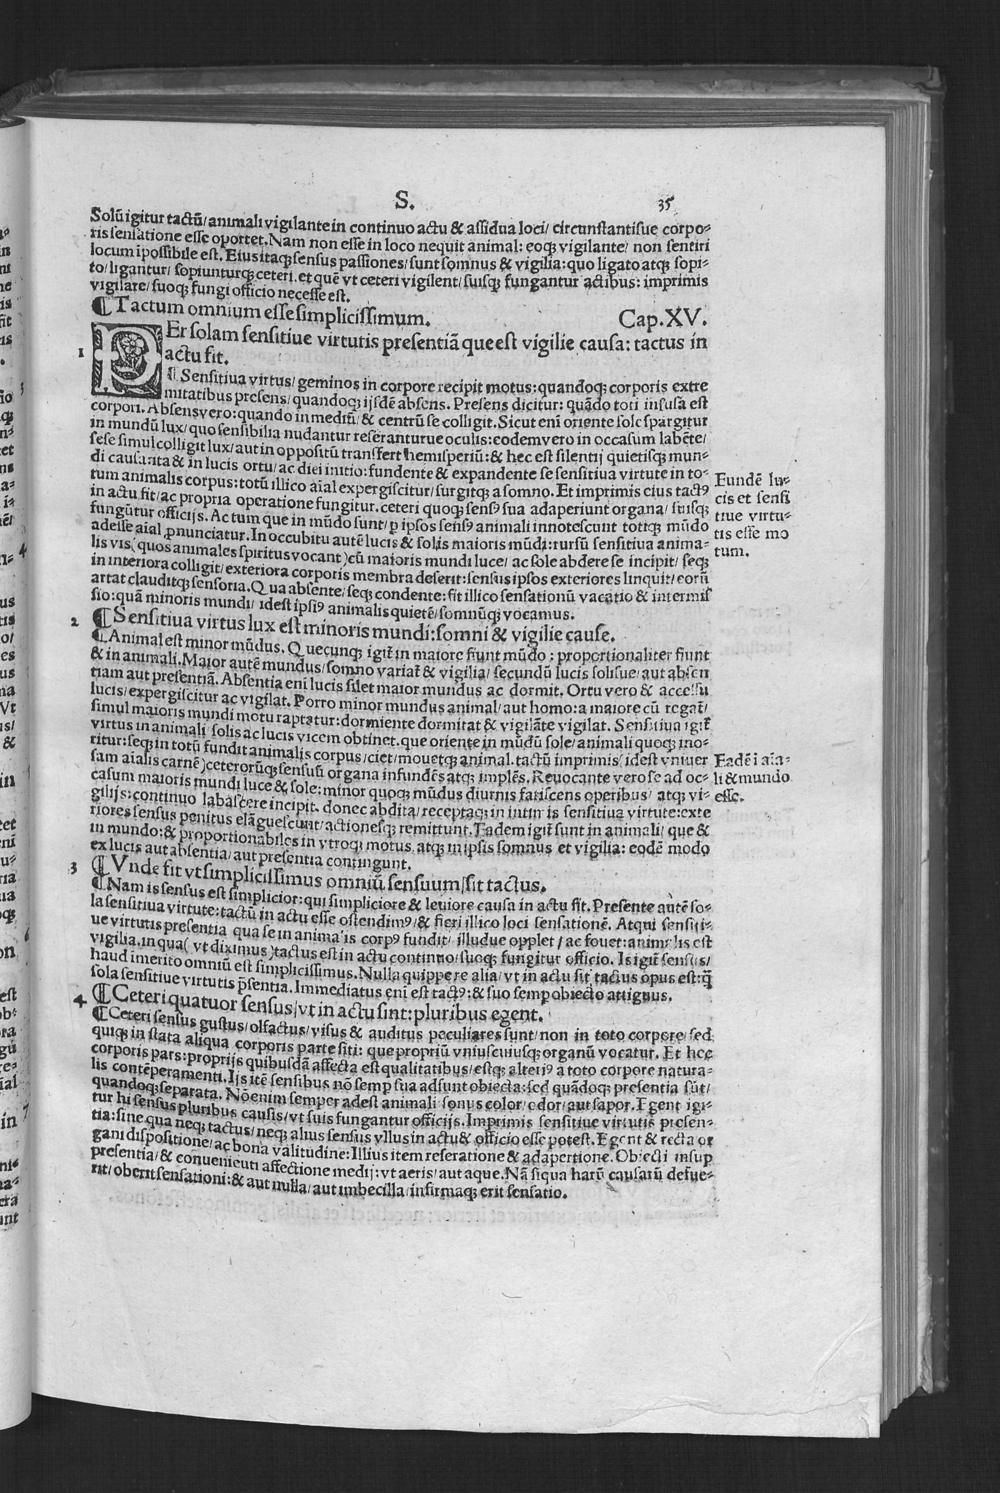 S. 35
Solũ igitur tactũ/ animali vigilante in continuo actu & assidua loci/ circunstantisue corpo-
ris sensatione esse oportet. Nam non esse in loco nequit animal: eoqꝫ vigilante/ non sentiri
locum ipossibile est. Eius itaqꝫ sensus passiones/ sunt somnus & vigilia: quo ligato atqꝫ sopi-
to/ ligantur/ sopiunturqꝫ ceteri. et quẽ vt ceteri vigilent/ suisqꝫ fungantur actibus: imprimis
vigilare/ suoqꝫ fungi officio necesse est.
¶ Tactum omnium esse simplicissimum. Cap. XV.
1 PEr solam sensitiue virtutis presentiã que est vigilie causa: tactus in
actu fit.
¶ Sensitiua virtus/ geminos in corpore recipit motus: quandoqꝫ corporis extre
mitatibus presens/ quandoqꝫ ijsdẽ absens. Presens dicitur: quãdo toti infusa est
corpori. Absens vero: quando in meditũ/ & centrũ se colligit. Sicut eni oriente sole spargitur
in mundũ lux/ quo sensibilia nudantur reseranturue oculis: eodem vero in occasum labẽte/
sese simul colligit lux/ aut in oppositũ transfert hemisperiũ: & hec est silentij quietisqꝫ mun-
di causa: ita & in lucis ortu/ ac diei initio: fundente & expandente se sensitiua virtute in to-
tum animalis corpus: totũ illico aial expergiscitur/ surgitqꝫ a somno. Et imprimis eius tactꝰ
in actu fit/ ac propria operatione fungitur. ceteri quoqꝫ sensꝰ sua adaperiunt organa/ suisqꝫ
fungũtur officijs. Ac tum que in mũdo sunt/ p ipsos sensꝰ animali innotescunt totqꝫ mũdo
adesse aial pnunciatur. In occubitu autẽ lucis & solis maioris mũdi: rursũ sensitiua anima-
lis vis (quos animales spiritus vocant) cũ maioris mundi luce/ ac sole abdere se incipit/ seqꝫ
in interiora colligit/ exteriora corporis membra deserit: sensus ipsos exteriores linquit/ eorũ
artat clauditqꝫ sensoria. Qua absente/ seqꝫ condente: fit illico sensationũ vacatio & intermis
sio: quã minoris mundi/ idest ipsiꝰ animalis quietẽ/ somnũqꝫ vocamus.
Eundẽ lu-
cis et sensi
tiue virtu-
tis esse mo
tum.
2 ¶ Sensitiua virtus lux est minoris mundi: somni & vigilie cause.
¶ Animal est minor mũdus. Quecunqꝫ igit in maiore fiunt mũdo: proportionaliter fiunt
& in animali. Maior autẽ mundus/ somno variat & vigilia/ secundũ lucis solisue/ aut absen
tiam aut presentiã. Absentia eni lucis silet maior mundus ac dormit. Ortu vero & accessu
lucis/ expergiscitur ac vigilat. Porro minor mundus animal/ aut homo: a maiore cũ regat/
simul maioris mundi motu raptatur: dormiente dormitat & vigilãte vigilat. Sensitiua igit
virtus in animali/ solis ac lucis vicem obtinet. que oriente in mũdũ sole/ animali quoqꝫ ino-
ritur: seqꝫ in totũ fundit animalis corpus/ ciet/ mouetqꝫ animal. tactũ imprimis (idest vniuer
sam aialis carnẽ) ceterorũqꝫ sensuũ organa infundẽs atqꝫ implẽs. Reuocante vero se ad oc-
casum maioris mundi luce & sole: minor quoqꝫ mũdus diurnis fatiscens operibus/ atqꝫ vi-
gilijs: continuo labascere incipit. donec abdita/ receptaqꝫ in intimis sensitiua virtute: exte
riores sensus penitus elãguescunt/ actionesqꝫ remittunt. Eadem igit sunt in animali/ que &
in mundo: & proportionabiles in vtroqꝫ motus. atqꝫ in ipsis somnus et vigilia: eodẽ modo
ex lucis aut absentia/ aut presentia contingunt.
Eadẽ i aia-
li & mundo
esse.
3 ¶ Vnde fit vt simplicissimus omniũ sensuum/ sit tactus.
¶ Nam is sensus est simplicior: qui simpliciore & leuiore causa in actu fit. Presente autẽ so-
la sensitiua virtute: tactũ in actu esse ostendimꝰ/ & fieri illico loci sensationẽ. Atqui sensiti-
ue virtutis presentia qua se in animalis corpꝰ fundit/ illudue opplet/ ac fouet: animalis est
vigilia. in qua (vt diximus) tactus est in actu continuo/ suoqꝫ fungitur officio. Is igit sensus/
haud imerito omniũ est simplicissimus. Nulla quippe re alia/ vt in actu fit tactus opus est: q̃
sola sensitiue virtutis p̃sentia. Immediatus eni est tactꝰ: & suo semp obiecto attiguus.
4 ¶ Ceteri quatuor sensus/ vt in actu sint: pluribus egent.
¶ Ceteri sensus gustus/ olfactus/ visus & auditus peculiares sunt/ non in toto corpore/ sed
quiqꝫ in stata aliqua corporis parte siti: que propriũ vniuscuiusqꝫ organũ vocatur. Et hec
corporis pars: proprijs quibusdã affecta est qualitatibus/ estqꝫ alteriꝰ a toto corpore natura-
lis contẽperamenti. Ijs itẽ sensibus nõ semp sua adsunt obiecta: sed quãdoqꝫ presentia sũt/
quandoqꝫ separata. Nõ enim semper adest animali sonus color/ odor/ aut sapor. Egent igi-
tur hi sensus pluribus causis/ vt suis fungantur officijs. Imprimis sensitiue virtutis presen-
tia: sine qua neqꝫ tactus/ neqꝫ alius sensus vllus in actu & officio esse potest. Egent & recta or
gani dispositione/ ac bona valitudine: Illius item reseratione & adapertione. Obiecti insup
presentia/ & conuenienti affectione medij: vt aeris/ aut aque. Nã siqua harũ causarũ defue-
rit/ oberit sensationi: & aut nulla/ aut imbecilla/ infirmaqꝫ erit sensatio.